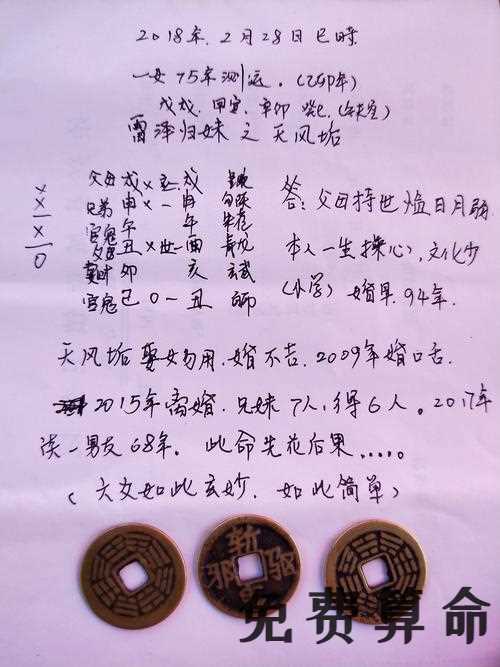 2018年.2月28日巳时
一女75年测运.(乙卯年)
戊戌.甲寅.辛卯 癸巳.(午未空)
雷泽归妹之天风垢
父母戌×应戌
兄弟申×一申
官鬼午 午
父母丑×世一酉 青龙
妻财卯 亥 玄武
官鬼巳0一丑
答:父母持世临日月弱
本人一生操心,文化少
(小学)婚早.94年.
天风垢娶女勿用.婚不吉.2009年婚口舌.
2015年离婚.兄妹7人,得6人。2017年
谈一男友68年. 此命先花后果.....。
(六爻如此玄妙.如此简单)
斩
邪 驱
免费算命